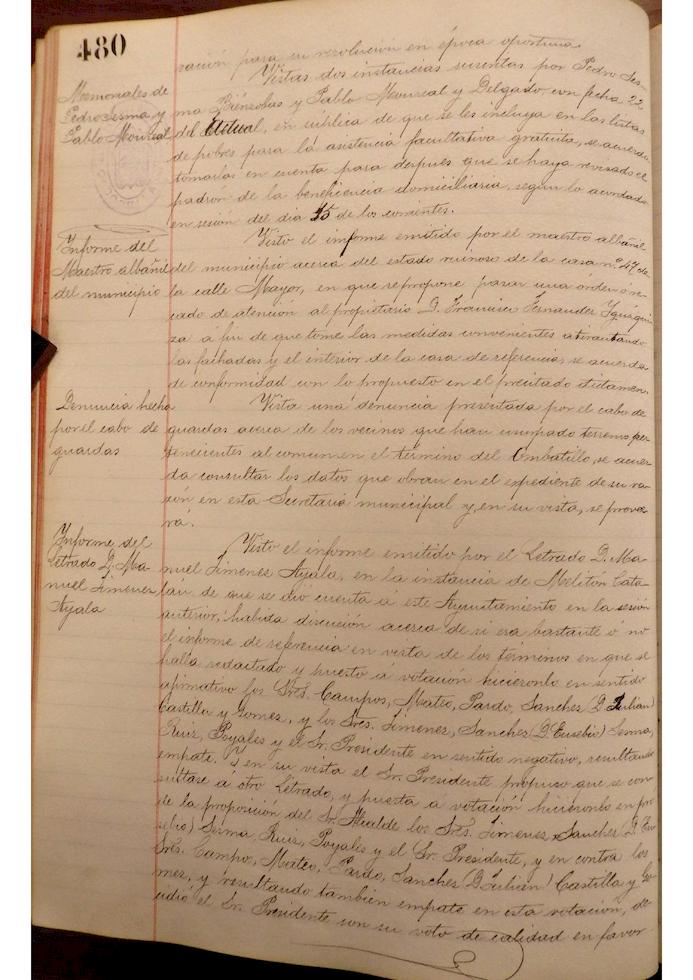 480
vación para su resolución en época oportuna.
Memoriales de
Pedro Sesma y
Pablo Monreal
Vistas dos instancias suscritas por Pedro Ses-
ma Biénzobas y Pablo Monreal y Delgado con fecha 22
del actual, en súplica de que se les incluya en las listas
de pobres para la asistencia facultativa gratuita, se acuerda
tomarlas en cuenta para después que se haya revisado el
padrón de la beneficencia domiciliaria, según lo acordado
en sesión del dia 15 de los corrientes.
Informe del
Maestro albañil
del municipio
Visto el informe emitido por el maestro albañil
del municipio acerca del estado ruinoso de la casa nº 47 de
la calle Mayor, en que se propone pasar una órden ó re-
cado de atención al propietario D. Francisco Fernandez Yguiqui-
za á fin de que tome las medidas convenientes atirantando
las fachadas y el interior de la casa de referencia, se acuerda
de conformidad con lo propuesto en el precitado dictamen.
Denuncia hecha
por el cabo de
guardas
Vista una denuncia presentada por el cabo de
guardas acerca de los vecinos que han usurpado terrenos per-
tenecientes al comun en el término del Ombatillo, se acuer-
da consultar los datos que obran en el expediente de su ra-
zón en esta Secretaria municipal y, en su vista, se provee-
rá.
Informe del
Letrado D. Ma-
nuel Jimenez
Ayala
Visto el informe emitido por el Letrado D. Ma-
nuel Jimenez Ayala, en la instancia de Meliton Cata-
lán de que se dio cuenta á este Ayuntamiento en la sesión
anterior, habida discusión acerca de si era bastante ó no
el informe de referencia en vista de los términos en que se
halla redactado y puesto á votación hicieronlo en sentido
afirmativo los Sres. Campos, Mateo, Pardo, Sanchez (D. Julian)
Castilla y Gomez, y los Sres. Jimenez, Sanchez (D. Eusebio) Sesma,
Ruiz, Poyales y el Sr. Presidente en sentido negativo, resultando
empate. Y en su vista el Sr. Presidente propuso que se con-
sultase á otro Letrado, y puesta á votación hicieronlo en pro
de la proposición del Sr. Alcalde los Sres. Jimenez, Sanchez (D. Eu-
sebio) Sesma, Ruiz, Poyales y el Sr. Presidente, y en contra los
Sres. Campos, Mateo, Pardo, Sanchez (D. Julian) Castilla y Go-
mez, y resultando tambien empate en esta votación, de-
cidió el Sr. Presidente con su voto de calidad en favor